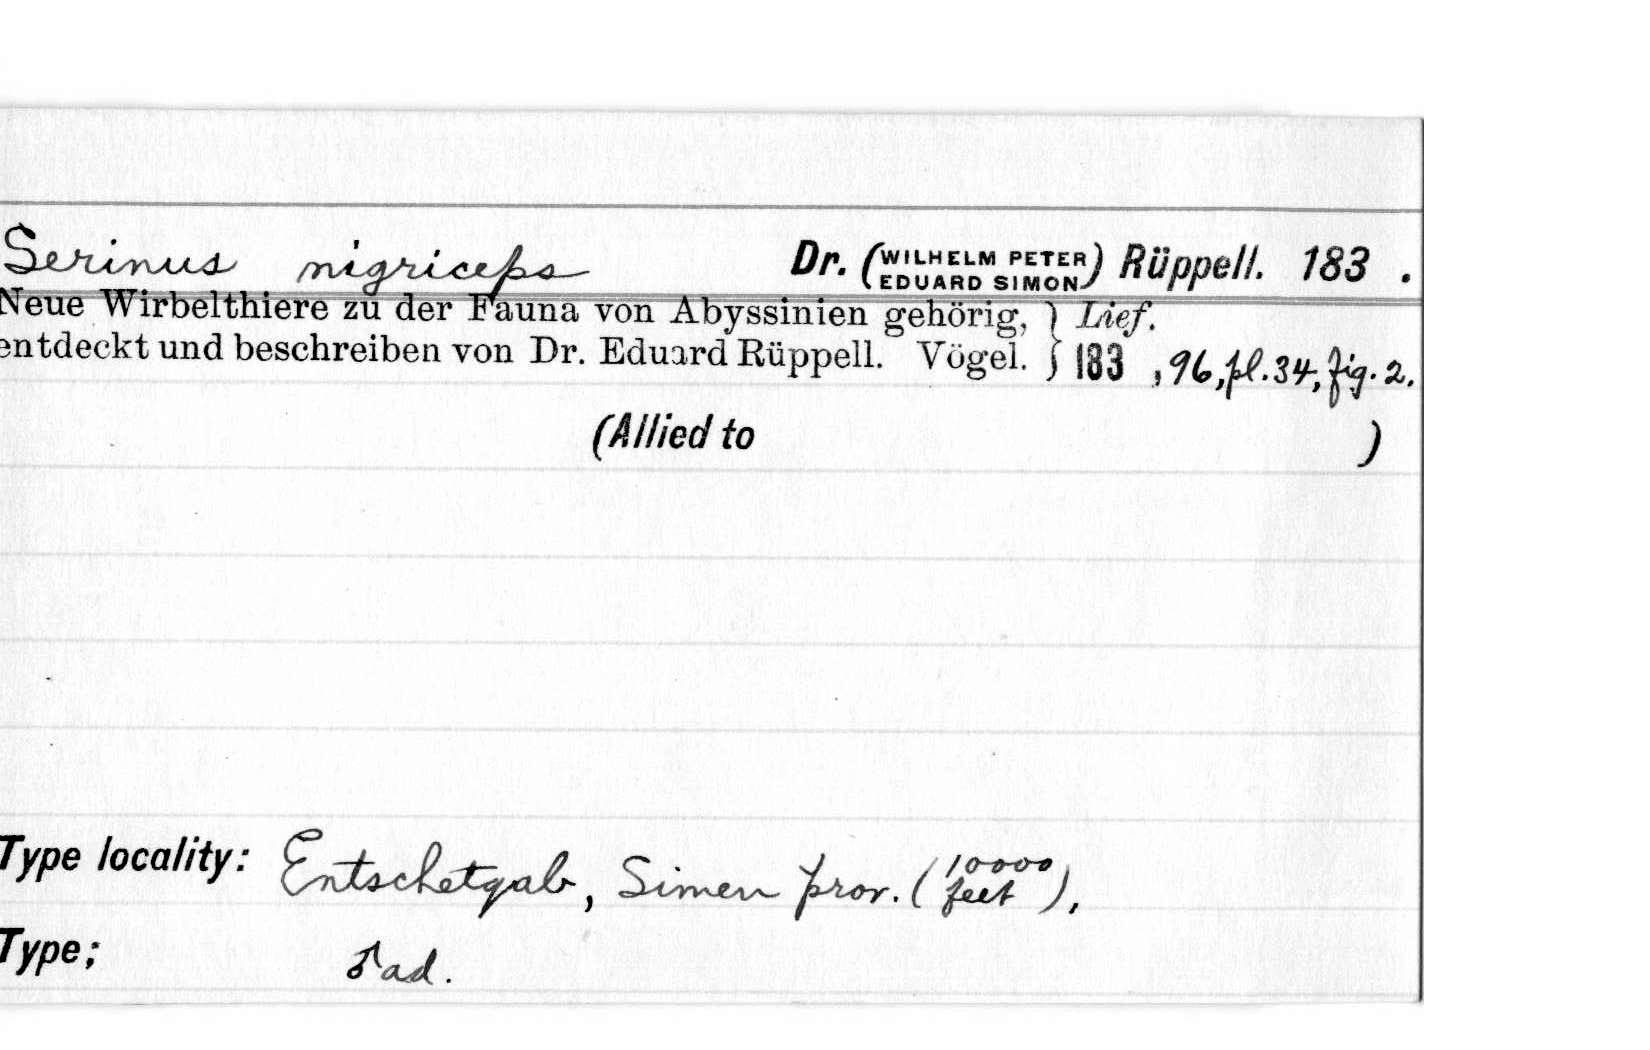 Serinus nigriceps Dr. (WILHELM PETER EDUARD SIMON) Rüppell. 183 .
Neue Wirbelthiere zu der Fauna von Abyssinien gehörig, } Lief.
entdeckt und beschreiben von Dr. Eduard Rüppell. Vögel. } 183 , 96, pl. 34, fig. 2.
(Allied to )
Type locality: Entschetqab, Simen prov. (10000 feet),
Type; ♂ ad.